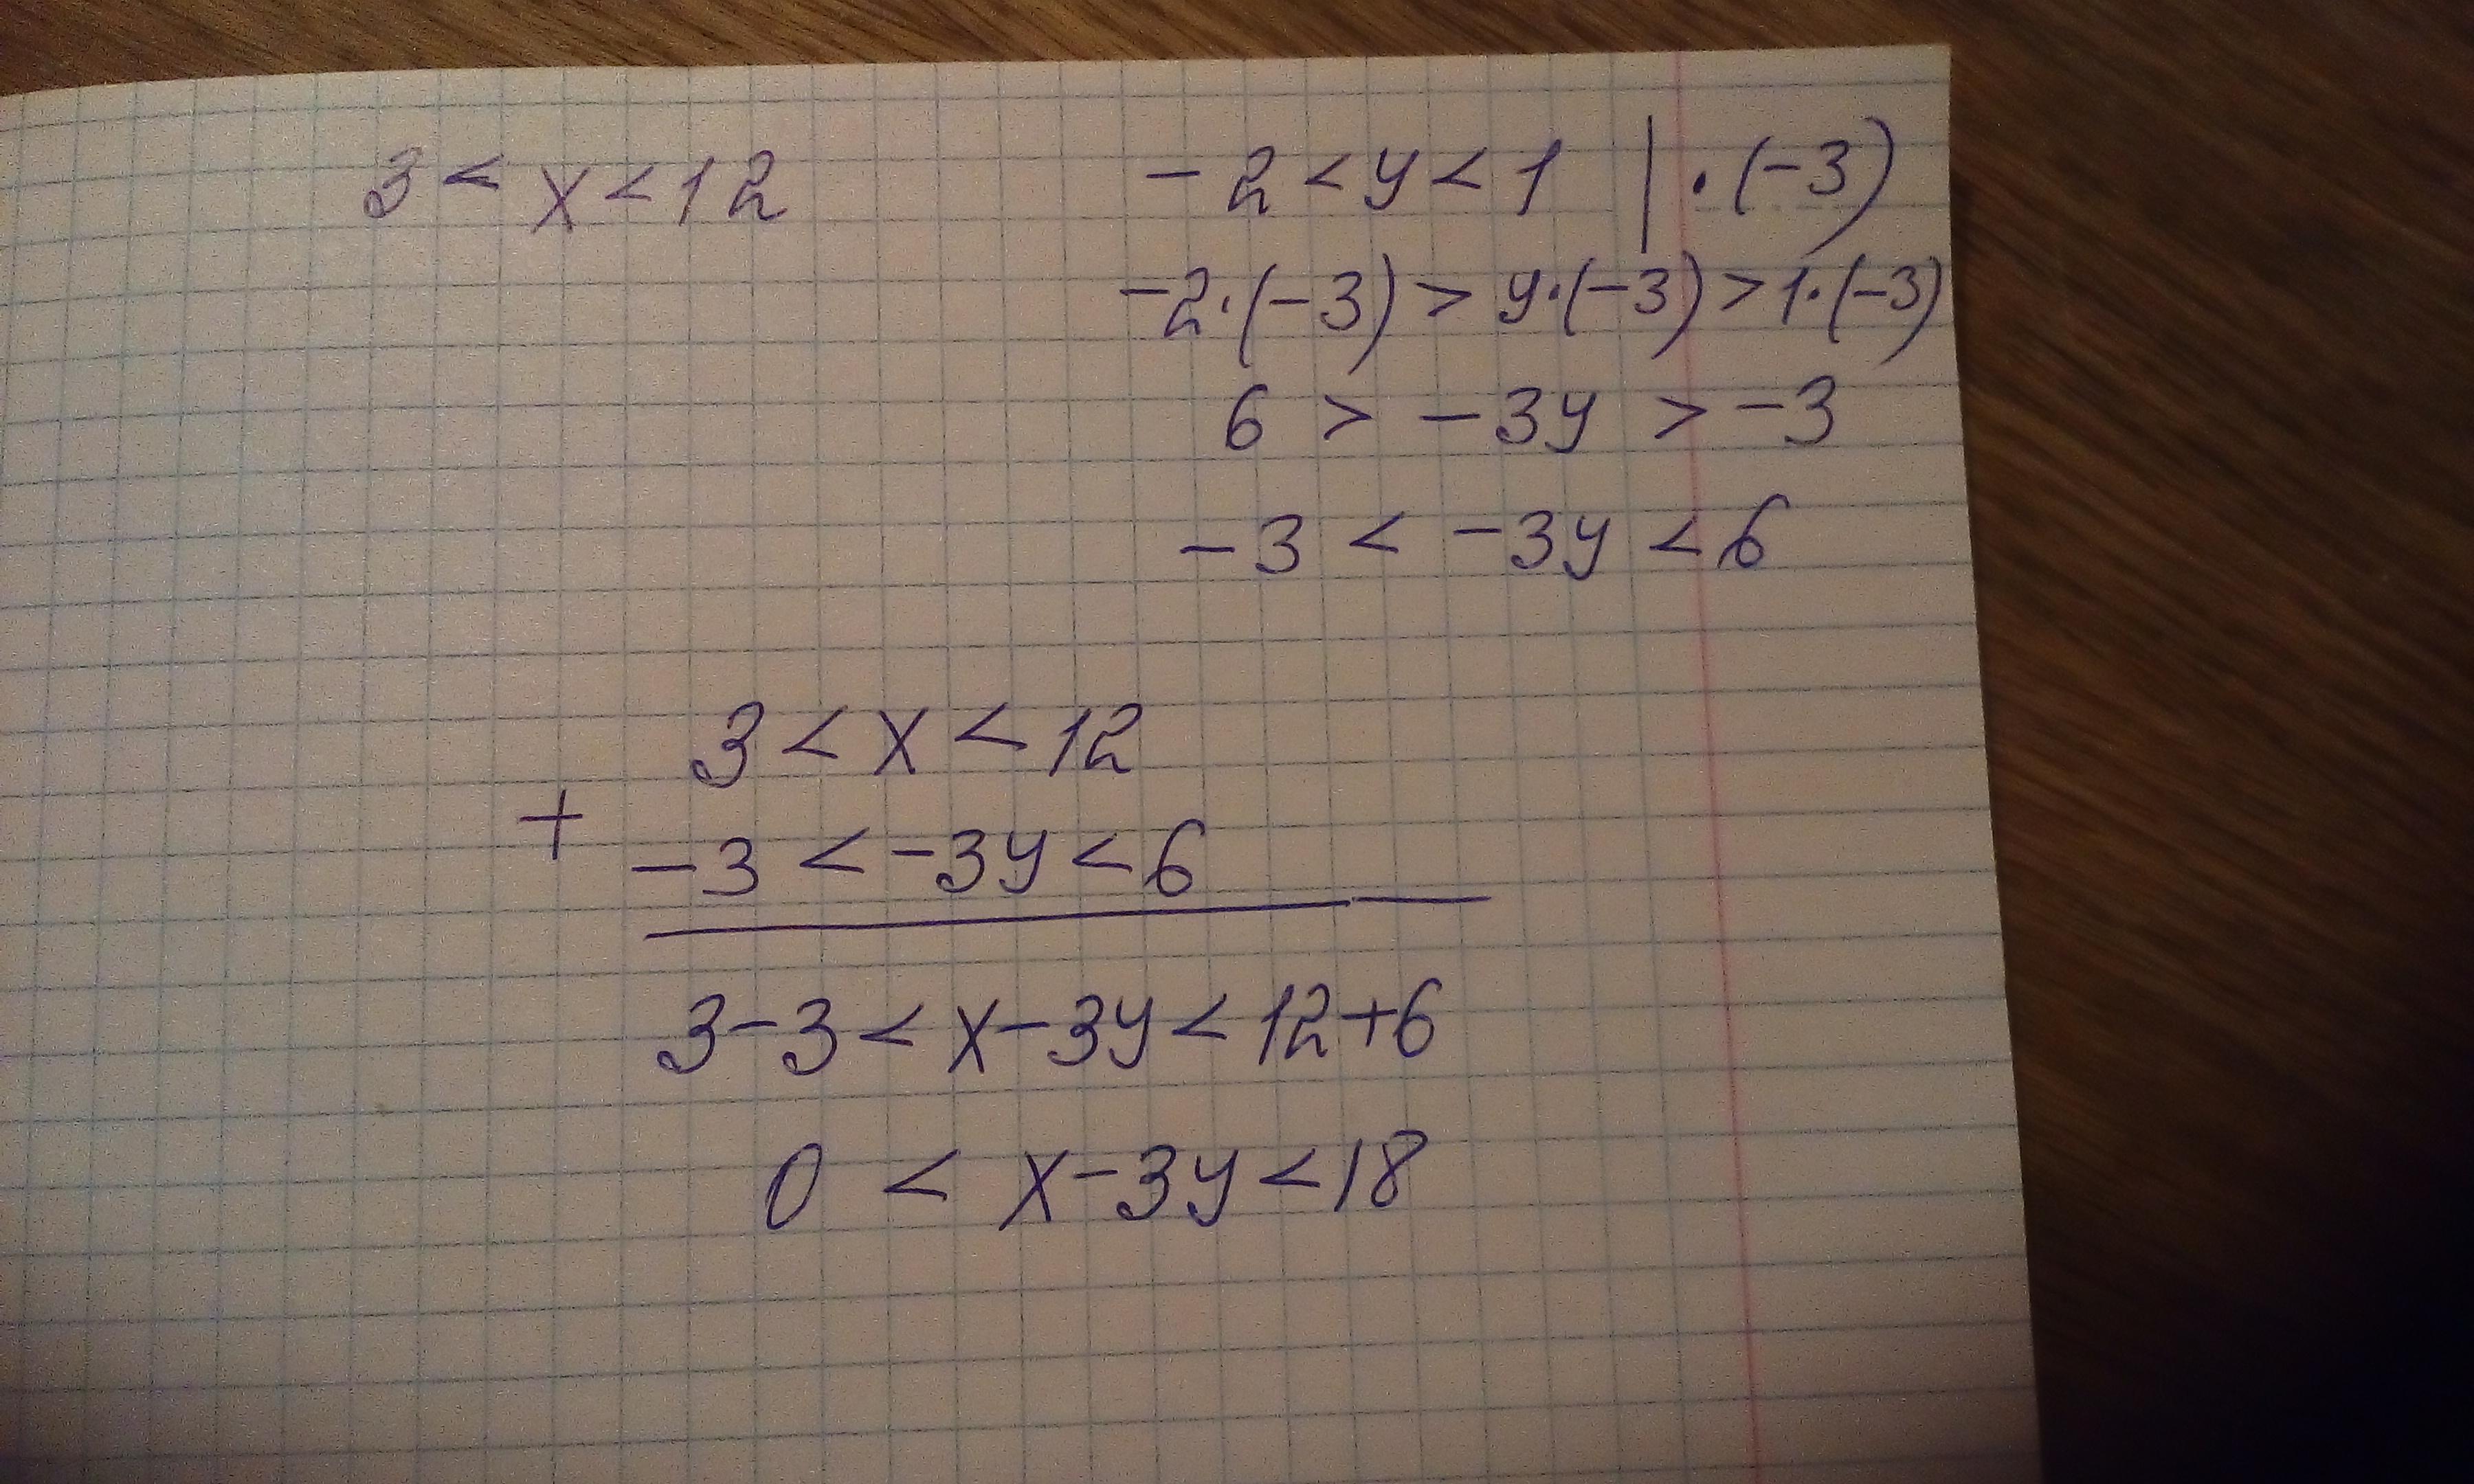 3 < x < 12
-2 < y < 1 | · (-3)
-2·(-3) > y·(-3) > 1·(-3)
6 > -3y > -3
-3 < -3y < 6
3 < x < 12
+
-3 < -3y < 6
3-3 < x-3y < 12+6
0 < x-3y < 18